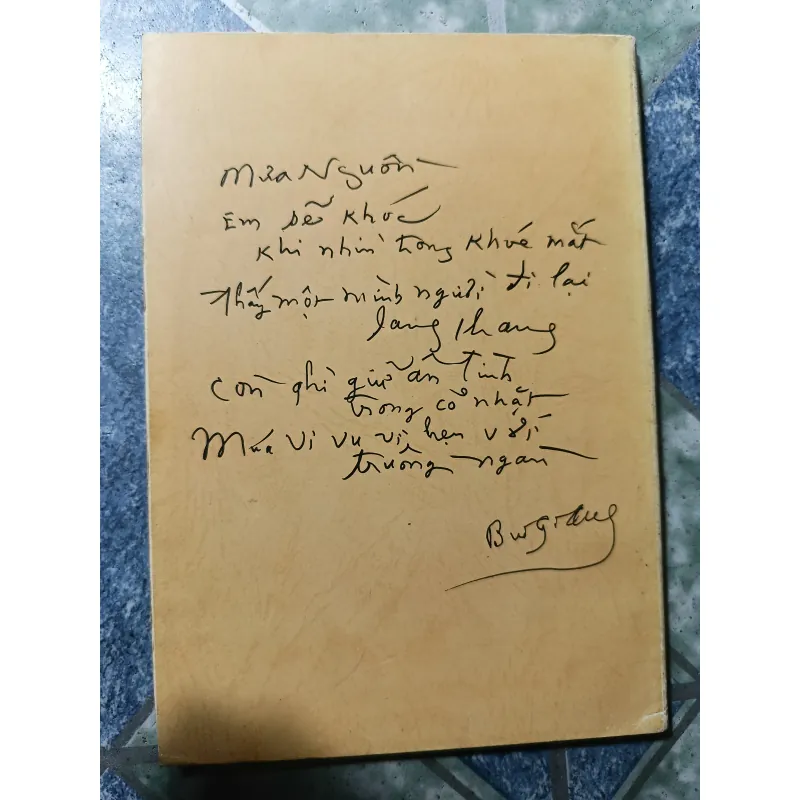 Mưa Nguồn
Em sẽ khóc
khi nhìn trong khoé mắt
Thấy một mình người đi lại
lang thang
Còn ghì giữ ân tình
trong cỏ nhặt
Múa vi vu vì hẹn với
trường ngàn
Bùi Giáng